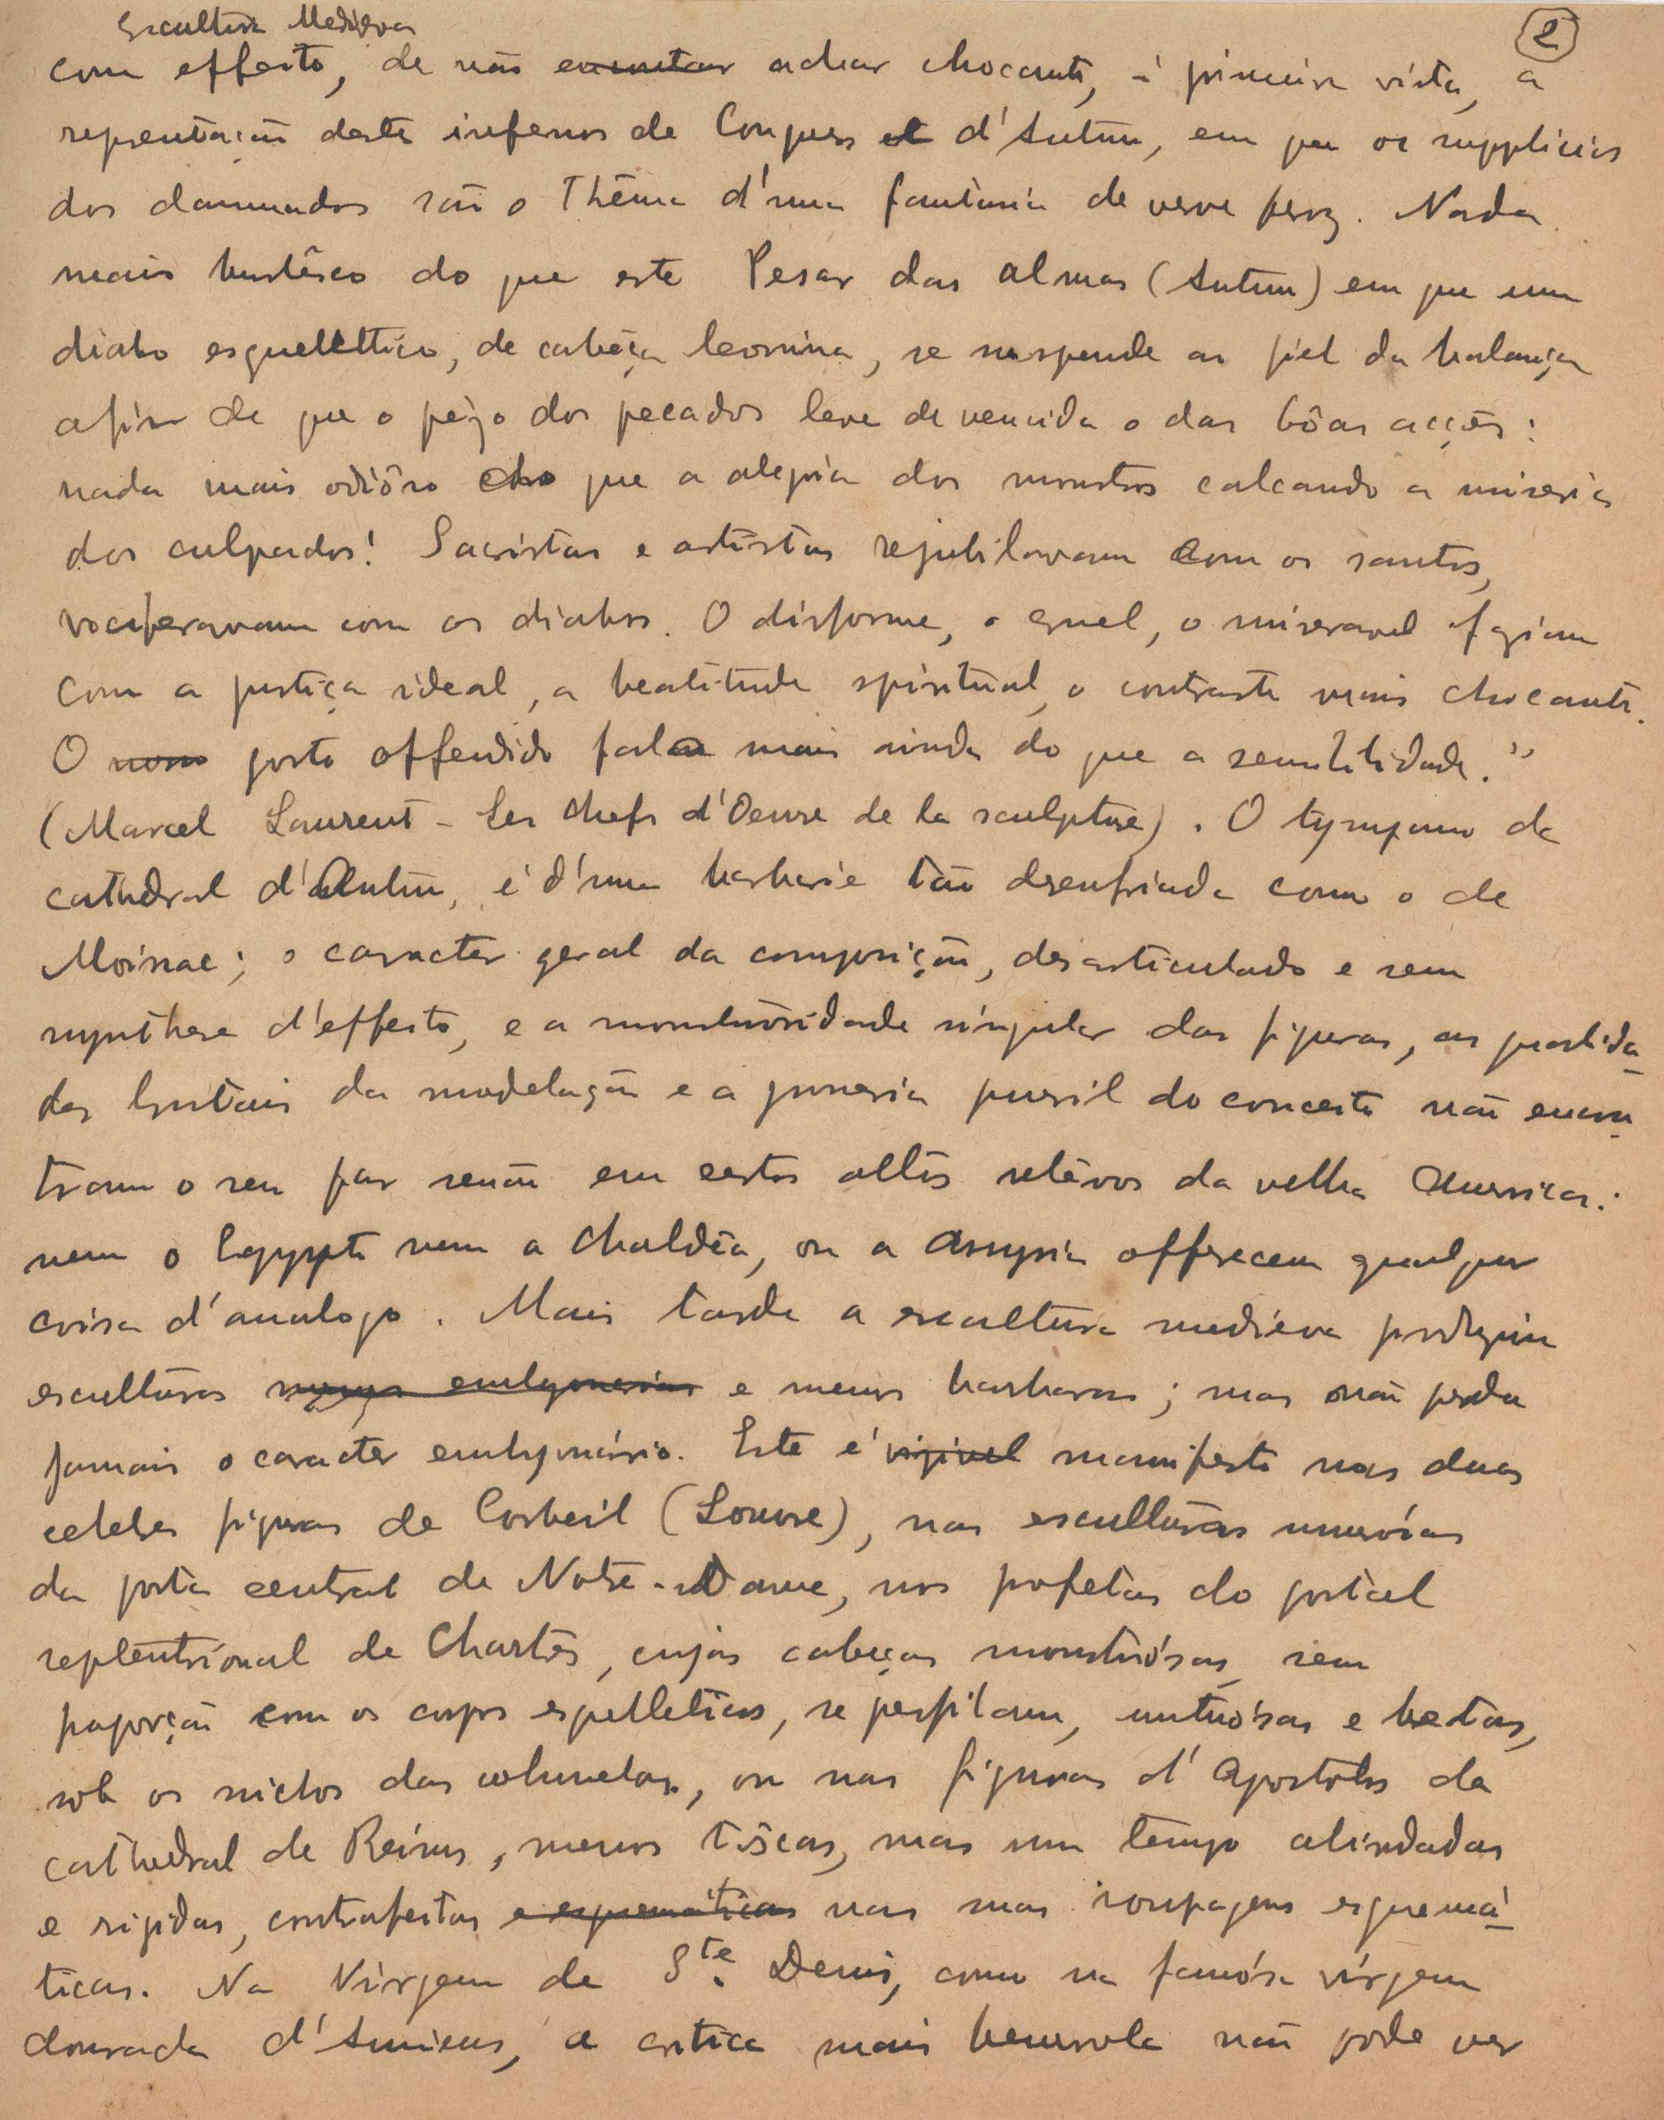 Escultura Medieva
2
com effeito, de não encontrar achar chocante, á primeira vista, a
representação destes infernos de Conques et d'Autun, em que os supplicios
dos damnados são o Thêma d'uma fantasia de verve feroz. Nada
mais burlêsco do que este Pesar das almas (Autun) em que um
diabo esquelettico, de cabêça leonina, se suspende ao fiel da balança
afim de que o pêzo dos pecados leve de vencida o das bôas acções:
nada mais odiôso do que a alegria dos monstros calcando a miseria
dos culpados! Sacristas e artistas rejubilavam com os santos,
vociferavam com os diabos. O disforme, o cruel, o miseravel faziam
com a justiça ideal, a beatitude spiritual, o contraste mais chocante.
O nosso gosto offendido fala mais ainda do que a sensibilidade."
(Marcel Laurent - Les chefs d'Oeuvre de la sculpture). O tympano da
cathedral d'Autun, é d'uma barbarie tão desenfriada como o de
Moissac; o caracter geral da composição, desarticulado e sem
synthese d'effeito, e a monstruosidade singular das figuras, as qualida-
des brutais da modelação e a grosseria pueril do conceito não encon-
tram o seu par senão em certos altos relêvos da velha America:
nem o Egypto nem a Chaldêa, ou a Assyria offerecem qualquer
coisa d'analogo. Mais tarde a escultura medieva produziu
esculturas menos embryonarias e menos barbaras; mas não perdeu
jamais o caracter embryonário. Este é visivel manifesto nas duas
celebres figuras de Corbeil (Louvre), nas esculturas
da porta central de Notre-Dame, nos profetas do portal
septentrional de Chartres, cujas cabeças monstruósas, sem
proporção com os corpos esqueleticos, se perfilam, untuósas e beatas,
sob os nichos das colunelas, ou nas figuras d'Apostolos da
cathedral de Reims, menos tíscas, mas um tempo alindadas
e rigidas, contrafeitas e esquemáticas nas suas roupagens esquemá-
ticas. Na Virgem de Ste. Denis, como na famósa virgem
dourada d'Amiens, a critica mais benevola não pode ver